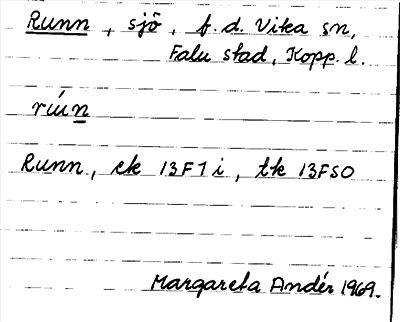 Runn, sjö, f.d. Vika sn,
Falu stad, Kopp. l.
rúin
Runn, ek 13F7i, tk 13FSO
Margareta Andér 1969.